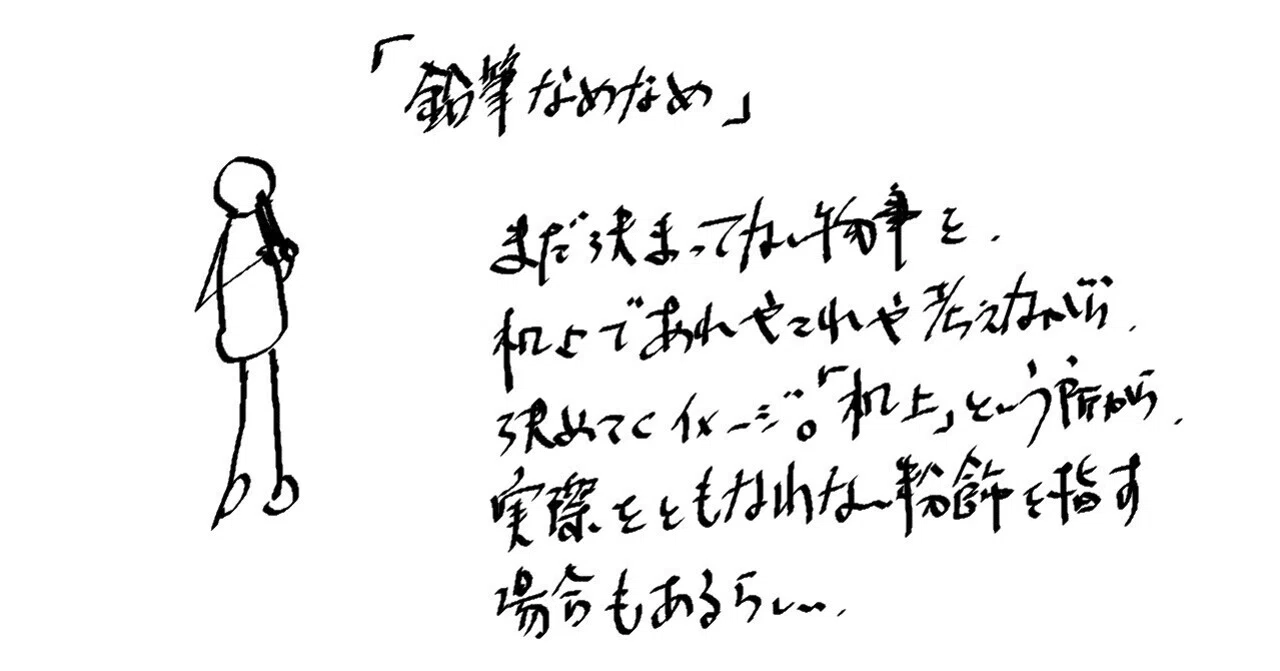 「鉛筆なめなめ」
まだ決まってない物事を、
机上であれやこれや考えながら、
決めてくイメージ。「机上」という所から、
実際をともなわない粉飾を指す
場合もあるらしい…